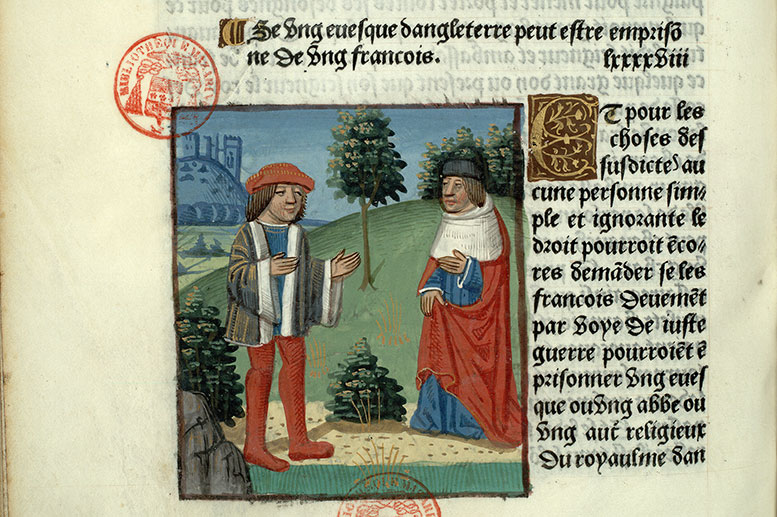 Se ung evesque dangleterre peut estre empriso
ne de ung francois. lxxxxviii
Et pour les
choses des
susdictes au
cune personne sim
ple et ignorante le
droit pourroit eco
res demader se les
francois devemēt
par voye de iuste
guerre pourroiēt ē
prisonner ung eves
que ou ung abbe ou
ung autͤ religieux
du royaulme dan